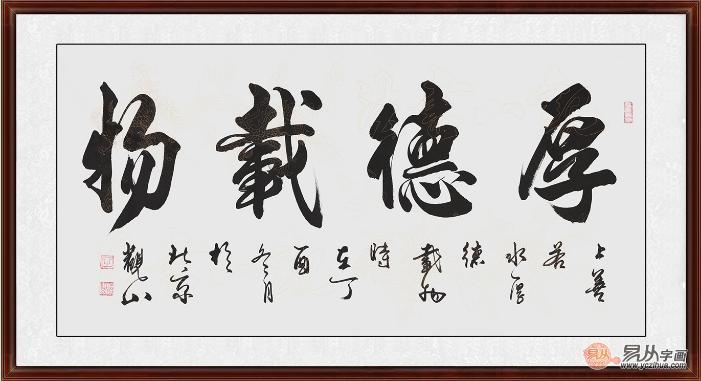 厚德載物
上善
若
水厚
德
載物
時
在丁
酉
冬月
於
北京
觀山
易从字画
www.yczihua.com